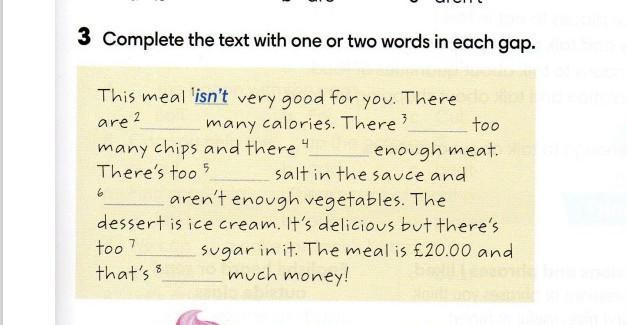 3 Complete the text with one or two words in each gap.
This meal ¹isn't very good for you. There
are ²______ many calories. There ³______ too
many chips and there ⁴______ enough meat.
There's too ⁵______ salt in the sauce and
⁶______ aren't enough vegetables. The
dessert is ice cream. It's delicious but there's
too ⁷______ sugar in it. The meal is £20.00 and
that's ⁸______ much money!